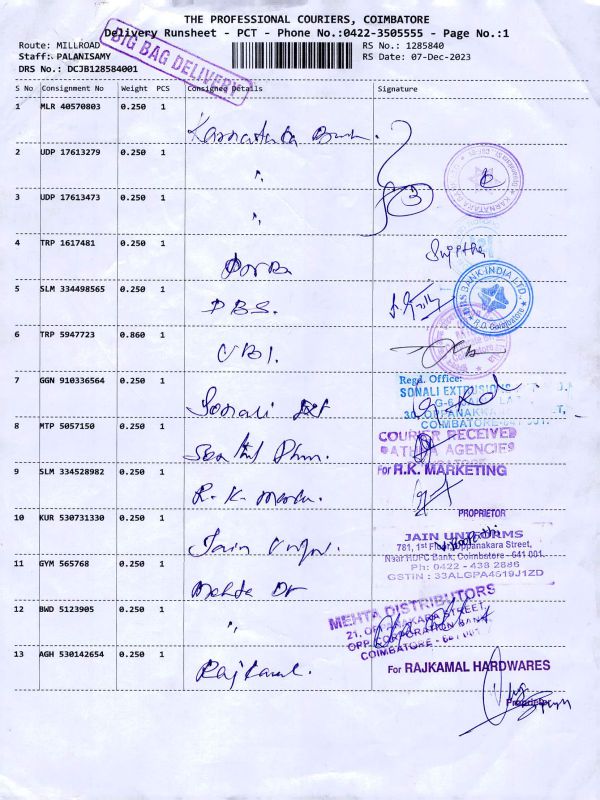 THE PROFESSIONAL COURIERS, COIMBATORE
Delivery Runsheet - PCT - Phone No.:0422-3505555 - Page No.:1
Route: MILLROAD
RS No.: 1285840
Staff: PALANISAMY
RS Date: 07-Dec-2023
DRS No.: DCJB128584001
BIG BAG DELIVERY
S No Consignment No Weight PCS Consignee Details Signature
1 MLR 40570803 0.250 1 Karnataka Bank.
2 UDP 17613279 0.250 1 "
3 UDP 17613473 0.250 1 " 3
4 TRP 1617481 0.250 1
5 SLM 334498565 0.250 1 DBS.
DBS BANK INDIA LTD.
R.O. Coimbatore
6 TRP 5947723 0.860 1 UBI.
7 GGN 910336564 0.250 1 Sonali Ext
Regd. Office:
SONALI EXTENSIONS
COIMBATORE
8 MTP 5057150 0.250 1
COURIER RECEIVED
AGENCIES
9 SLM 334528982 0.250 1 R. K. Mark.
For R.K. MARKETING
PROPRIETOR
10 KUR 530731330 0.250 1 Jain Unifo.
JAIN UNIFORMS
781, 1st Floor, Oppanakara Street,
Near HDFC Bank, Coimbatore - 641 001.
Ph: 0422 - 438 2886
GSTIN : 33ALGPA4619J1ZD
11 GYM 565768 0.250 1 Mehta Dr
12 BWD 5123905 0.250 1 "
MEHTA DISTRIBUTORS
21, OPPANAKARA STREET,
OPP. CORPORATION BANK,
COIMBATORE - 641 001
13 AGH 530142654 0.250 1 Rajkamal.
For RAJKAMAL HARDWARES
Proprietor